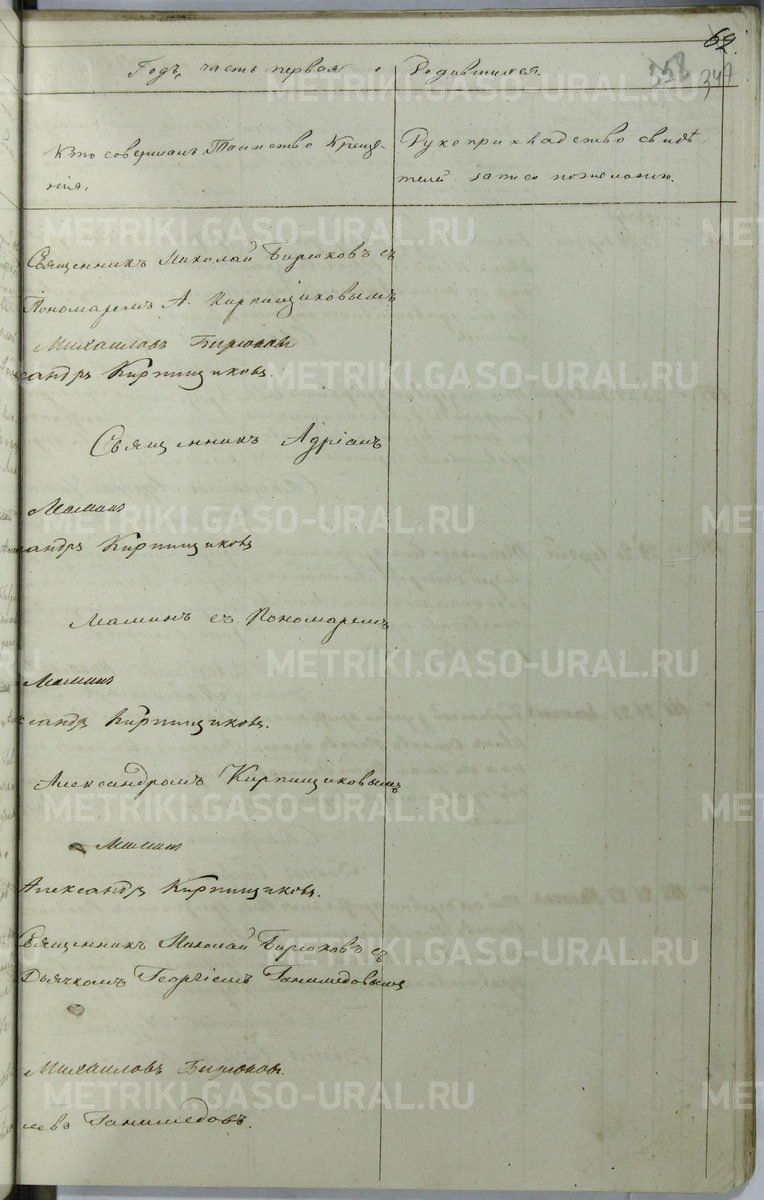 62.
353 347
Годъ, часть первая о Родившихся.
Кто совершалъ Таинство Креще-
нія.
Рукоприкладство свидѣ
телей записи по желанію.
Священникъ Николай Бирюковъ съ
Пономаремъ А. Кирпищиковымъ
Михаиловъ Бирюковъ
сандръ Кирпищиковъ.
Священникъ Адріанъ
Маминъ
сандръ Кирпищиковъ
Маминъ съ Пономаремъ
Маминъ
сандръ Кирпищиковъ.
Александромъ Кирпищиковымъ
Маминъ
Александръ Кирпищиковъ.
Священникъ Николай Бирюковъ съ
Дьячкомъ Георгіемъ Ганимедовымъ
Михаиловъ Бирюковъ.
Ганимедовъ.
METRIKI.GASO-URAL.RU